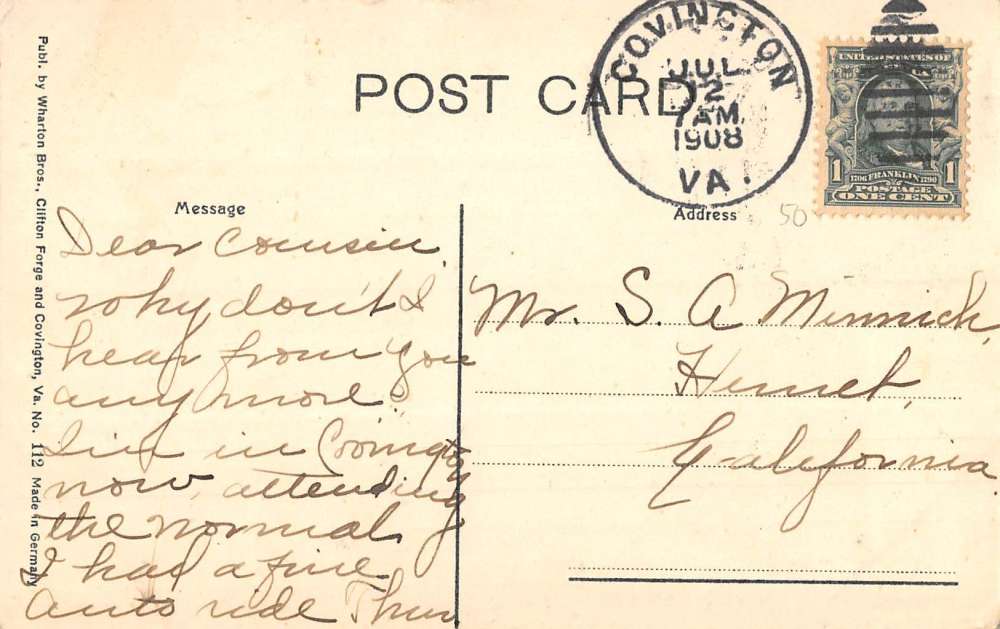 POST CARD
COVINGTON
JUL
2
7 AM
1908
VA.
UNITED STATES OF
1706 FRANKLIN 1790
POSTAGE
1 1
ONE CENT
50
Publ. by Wharton Bros., Clifton Forge and Covington, Va. No. 112 Made in Germany
Message
Dear Cousin,
why don't I
hear from you
any more?
I'm in Covington
now, attending
the normal.
I had a fine
auto ride Thur
Address
Mr. S. A. Minnich,
Hemet,
California